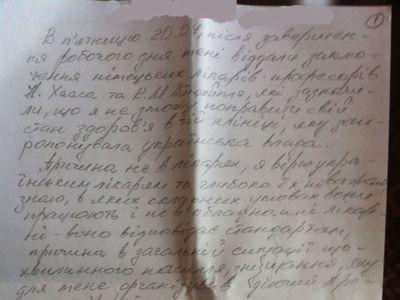 1
В п'ятницю 20.04, після завершен-
ня робочого дня мені віддали заклю-
чення німецьких лікарів-професорів
Н. Хааса та
які зазначи-
ли, що я не зможу поправити свій
стан здоров'я в тій клініці, яку зап-
ропонувала українська влада.
Причина не в лікарях, я вірю укра-
їнським лікарям та глибоко їх поважаю,
знаю, в яких складних умовах вони
працюють і не в обладнанні лікар-
ні - воно відповідає стандартам,
причина в загальній ситуації що-
хвилинного насилля, знущання, яку
для мене організував "діючий Пре-